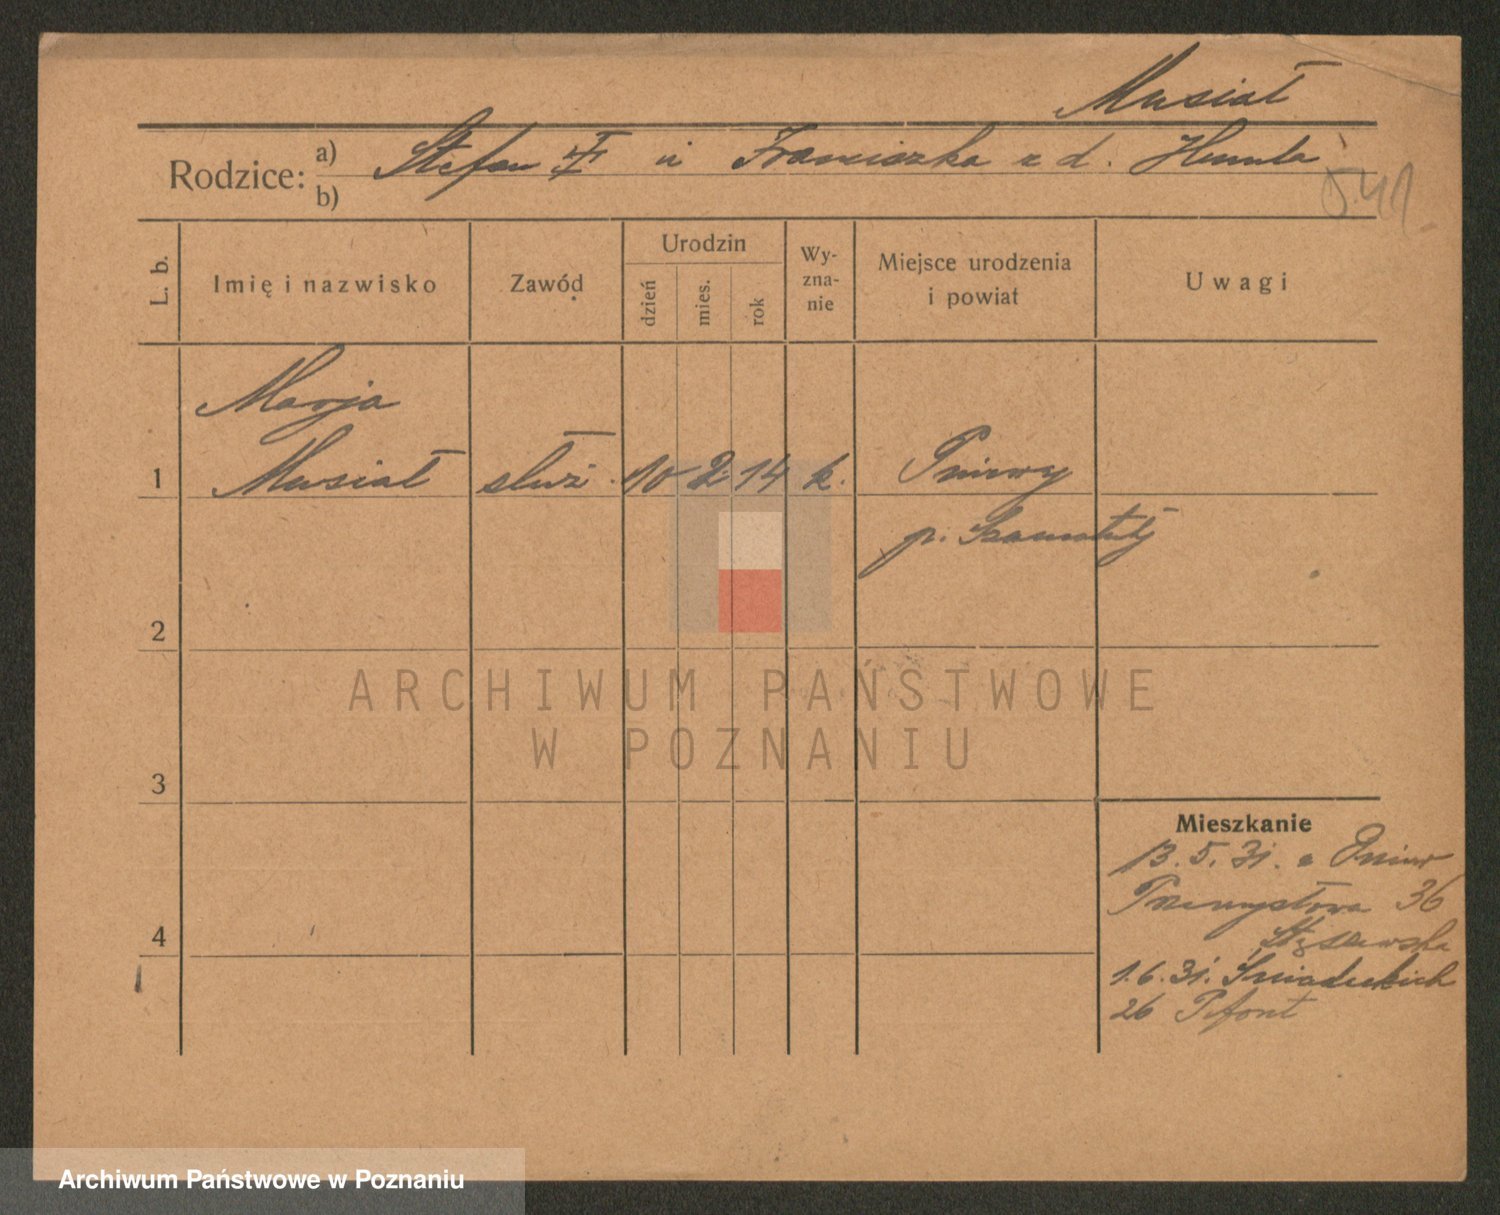 Musiał
Rodzice: a) Stefan ‡ i Franciszka z d.
b)
541.
L. b.
Imię i nazwisko
Zawód
Urodzin
dzień
mies.
rok
Wy-
zna-
nie
Miejsce urodzenia
i powiat
Uwagi
Marja
1 Musiał służ. 10 2. 14 k. Pniewy
p. Szamotuły
2
ARCHIWUM PAŃSTWOWE
W POZNANIU
3
Mieszkanie
13. 5. 31. z Pniew
Przemysłowa 36
4
1. 6. 31. Śniadeckich
26
Archiwum Państwowe w Poznaniu